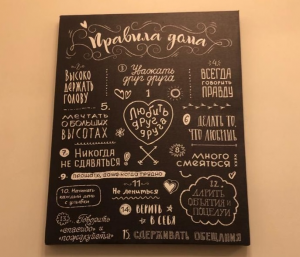 Правила дома
2.
Высоко
держать
голову
3. Уважать
друг друга
4.
Всегда
говорить
правду
1
Любить
друг
друга
5.
Мечтать
о больших
высотах
6. Делать то,
что любишь
7. Никогда
не сдаваться
8.
Много
смеяться
9. Прощать, даже когда трудно
10. Начинать
каждый день
с улыбки
11
Не лениться
12.
Дарить
объятия и
поцелуи
13. Говорить
«спасибо» и
«пожалуйста»
14. Верить
в себя
15. Сдерживать обещания